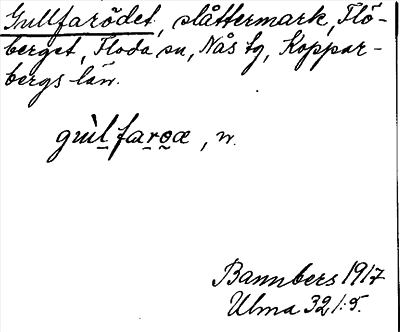 Gullfarödet, slåttermark, Flö-
berget, Floda sn, Nås tg, Koppar-
bergs län.
gùl̠farọæ, n.
Bannbers 1917
Ulma 32 1:5.